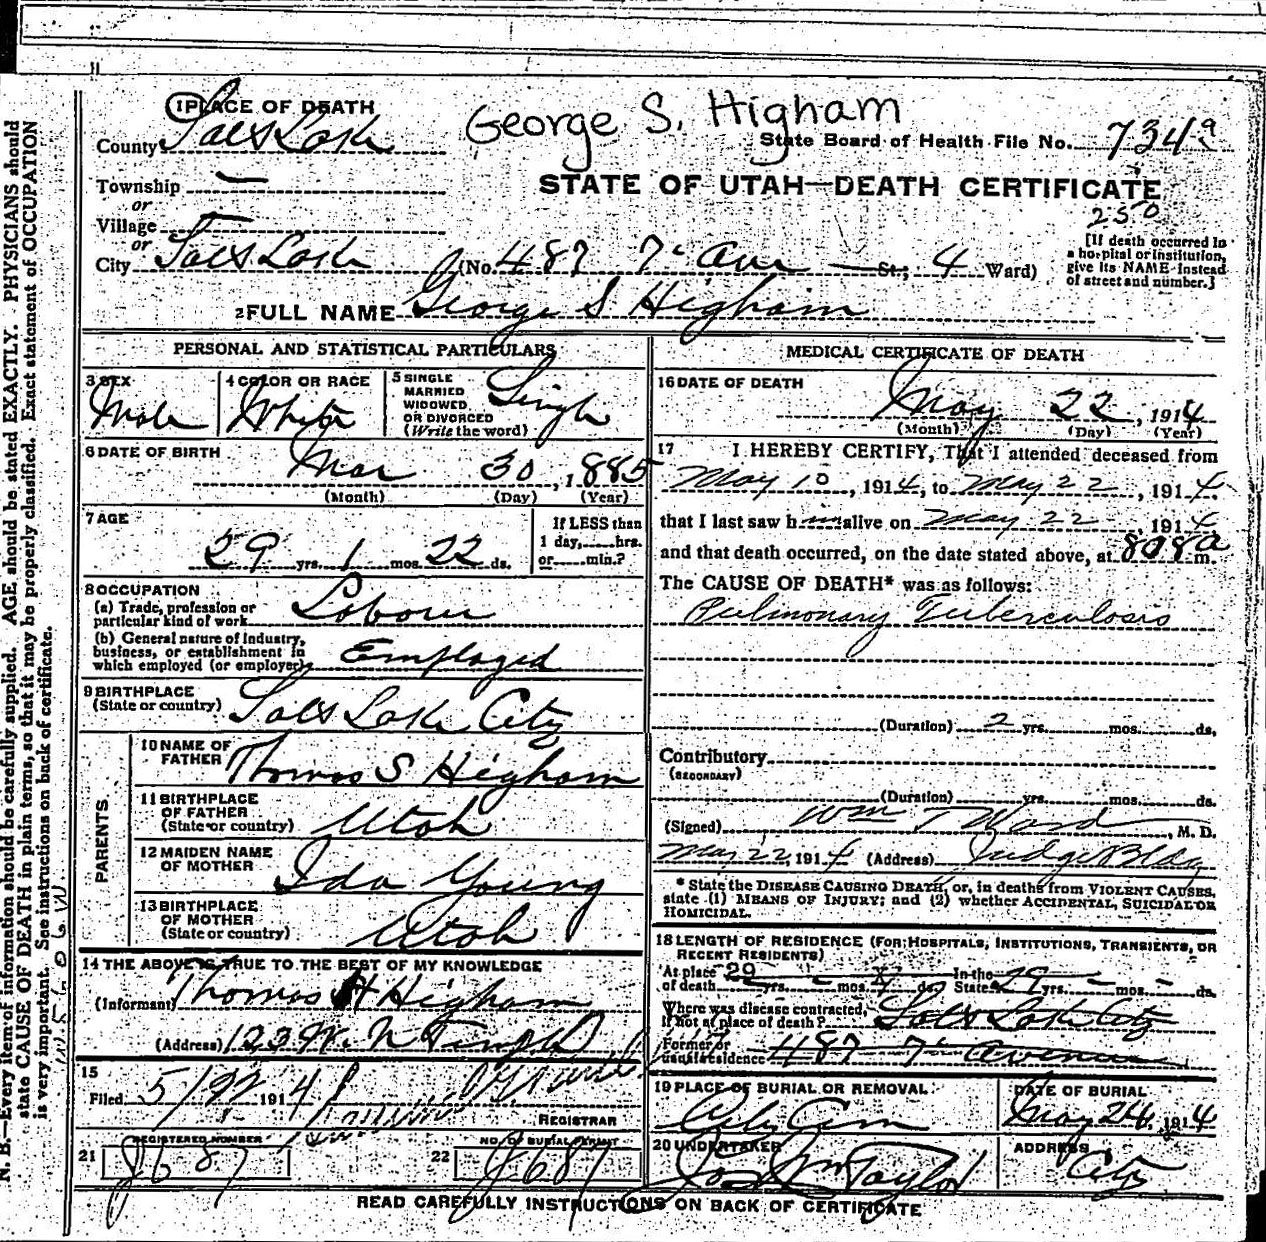 1 PLACE OF DEATH
George S. Higham
County Salt Lake
State Board of Health File No. 734a
Township —
or
STATE OF UTAH—DEATH CERTIFICATE
250
Village
or
City Salt Lake (No. 487 7" Ave St.; 4 Ward)
[If death occurred in a hospital or institution, give its NAME instead of street and number.]
2 FULL NAME George S Higham
PERSONAL AND STATISTICAL PARTICULARS
3 SEX
Male
4 COLOR OR RACE
White
5 SINGLE
MARRIED
WIDOWED
OR DIVORCED
(Write the word)
Single
6 DATE OF BIRTH
Mar 30, 1885
(Month) (Day) (Year)
7 AGE
29 yrs. 1 mos. 22 ds.
If LESS than
1 day,......hrs.
or......min.?
8 OCCUPATION
(a) Trade, profession or
particular kind of work Laborer
(b) General nature of industry,
business, or establishment in
which employed (or employer) Employed
9 BIRTHPLACE
(State or country) Salt Lake City
PARENTS
10 NAME OF
FATHER Thomas S Higham
11 BIRTHPLACE
OF FATHER
(State or country) Utah
12 MAIDEN NAME
OF MOTHER Ida Young
13 BIRTHPLACE
OF MOTHER
(State or country) Utah
14 THE ABOVE IS TRUE TO THE BEST OF MY KNOWLEDGE
(Informant) Thomas H Higham
(Address) 123 W. N Temple
15
Filed 5/22 1914
REGISTRAR
21 REGISTERED NUMBER J687
22 NO. OF BURIAL PERMIT J687
MEDICAL CERTIFICATE OF DEATH
16 DATE OF DEATH
May 22, 1914
(Month) (Day) (Year)
17 I HEREBY CERTIFY, That I attended deceased from
May 10, 1914, to May 22, 1914.
that I last saw him alive on May 22, 1914
and that death occurred, on the date stated above, at 808a m.
The CAUSE OF DEATH* was as follows:
Pulmonary Tuberculosis
(Duration) 2 yrs. mos. ds.
Contributory
(SECONDARY)
(Duration) yrs. mos. ds.
(Signed) Wm T Ward, M. D.
May 22, 1914 (Address) Judge Bldg
* State the DISEASE CAUSING DEATH, or, in deaths from VIOLENT CAUSES,
state (1) MEANS OF INJURY; and (2) whether ACCIDENTAL, SUICIDAL OR
HOMICIDAL.
18 LENGTH OF RESIDENCE (FOR HOSPITALS, INSTITUTIONS, TRANSIENTS, OR
RECENT RESIDENTS)
At place of death 29 yrs. - mos. ds. In the State 29 yrs. - mos. - ds.
Where was disease contracted,
if not at place of death? Salt Lake City
Former or
usual residence 487 7" Avenue
19 PLACE OF BURIAL OR REMOVAL
City Cem
DATE OF BURIAL
May 24, 1914
20 UNDERTAKER
Jos Wm Taylor
ADDRESS
City
READ CAREFULLY INSTRUCTIONS ON BACK OF CERTIFICATE
N. B.—Every item of information should be carefully supplied. AGE should be stated EXACTLY. PHYSICIANS should
state CAUSE OF DEATH in plain terms, so that it may be properly classified. Exact statement of OCCUPATION
is very important. See instructions on back of certificate.